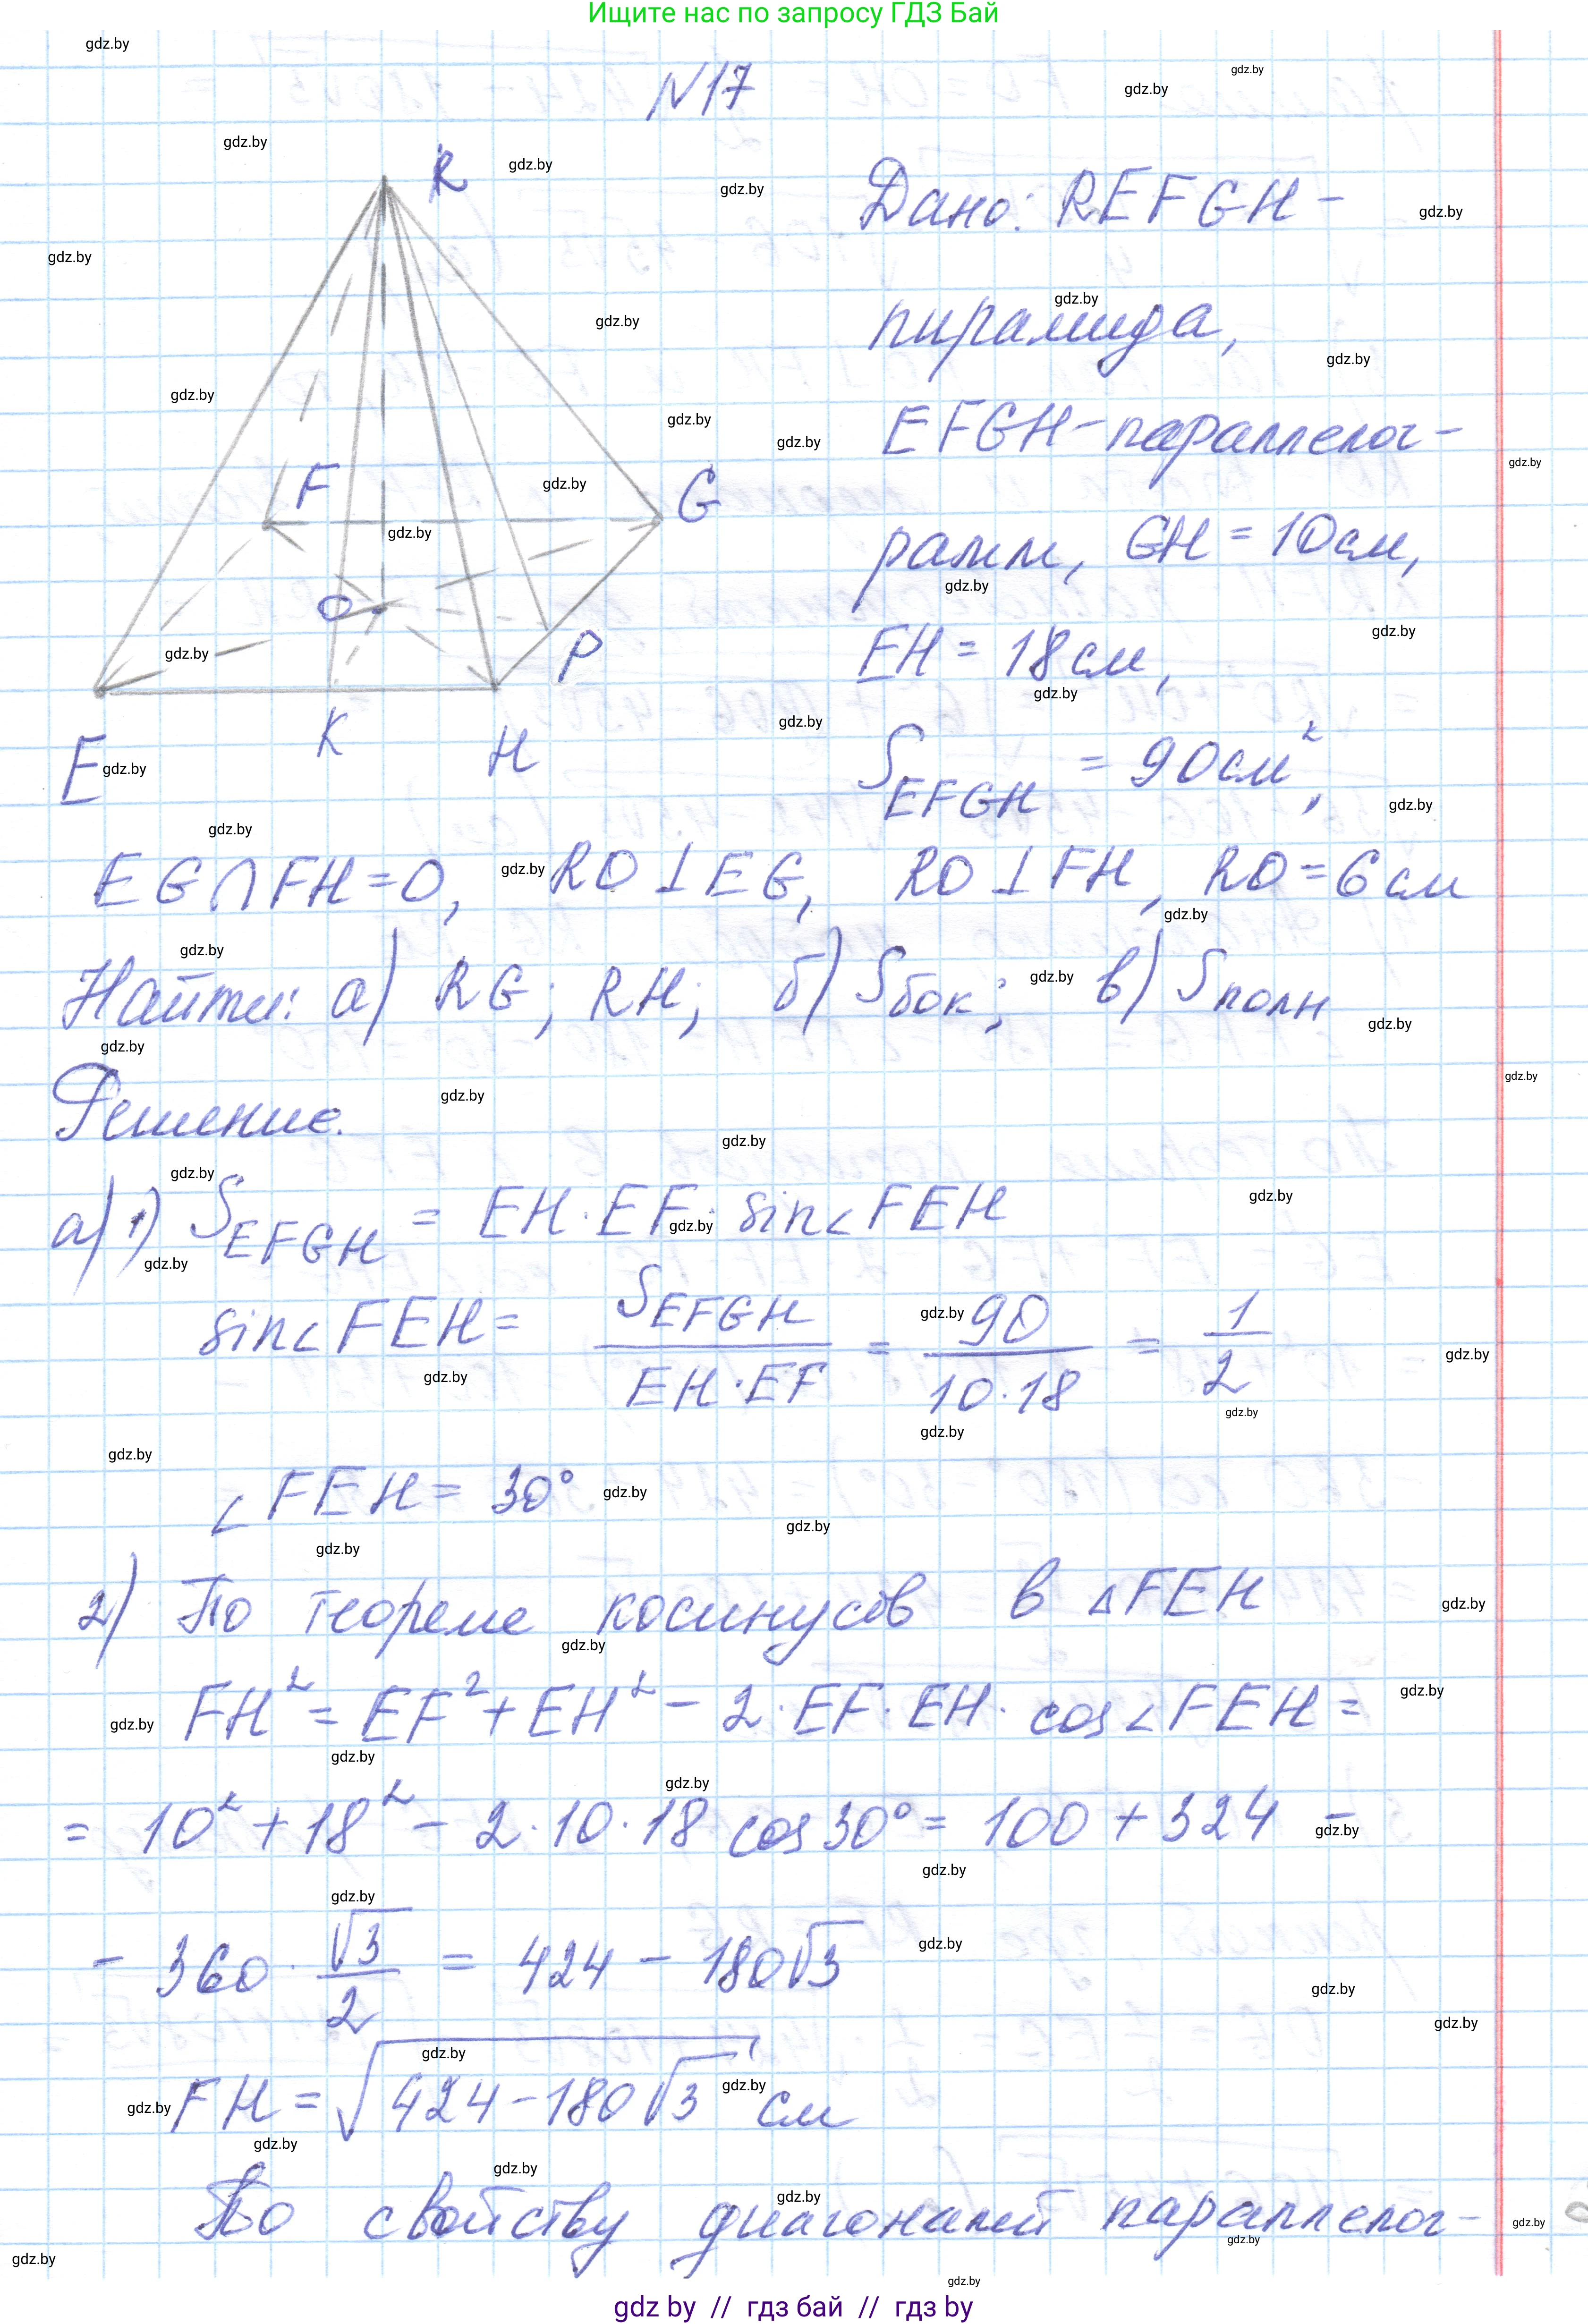 Ищите нас по запросу ГДЗ Бай
N17
Дано: REFGH -
пирамида,
EFGH - параллелог-
рамм, GH = 10 см,
EH = 18 см,
S_EFGH = 90 см²,
R
F
G
O
P
E
K
H
EG∩FH=O, RO⊥EG, RO⊥FH, RO=6 см
Найти: а) RG; RH; б) Sбок; в) Sполн
Решение.
а) 1) S_EFGH = EH·EF·sin∠FEH
sin∠FEH = S_EFGH / (EH·EF) = 90 / (10·18) = 1/2
∠FEH = 30°
2) По теореме косинусов в △FEH
FH² = EF² + EH² - 2·EF·EH·cos∠FEH =
= 10² + 18² - 2·10·18 cos30° = 100 + 324 -
- 360·√3/2 = 424 - 180√3
FH = √(424-180√3) см
По свойству диагоналей параллелог-
gdz.by
gdz by // гдз бай // гдз by